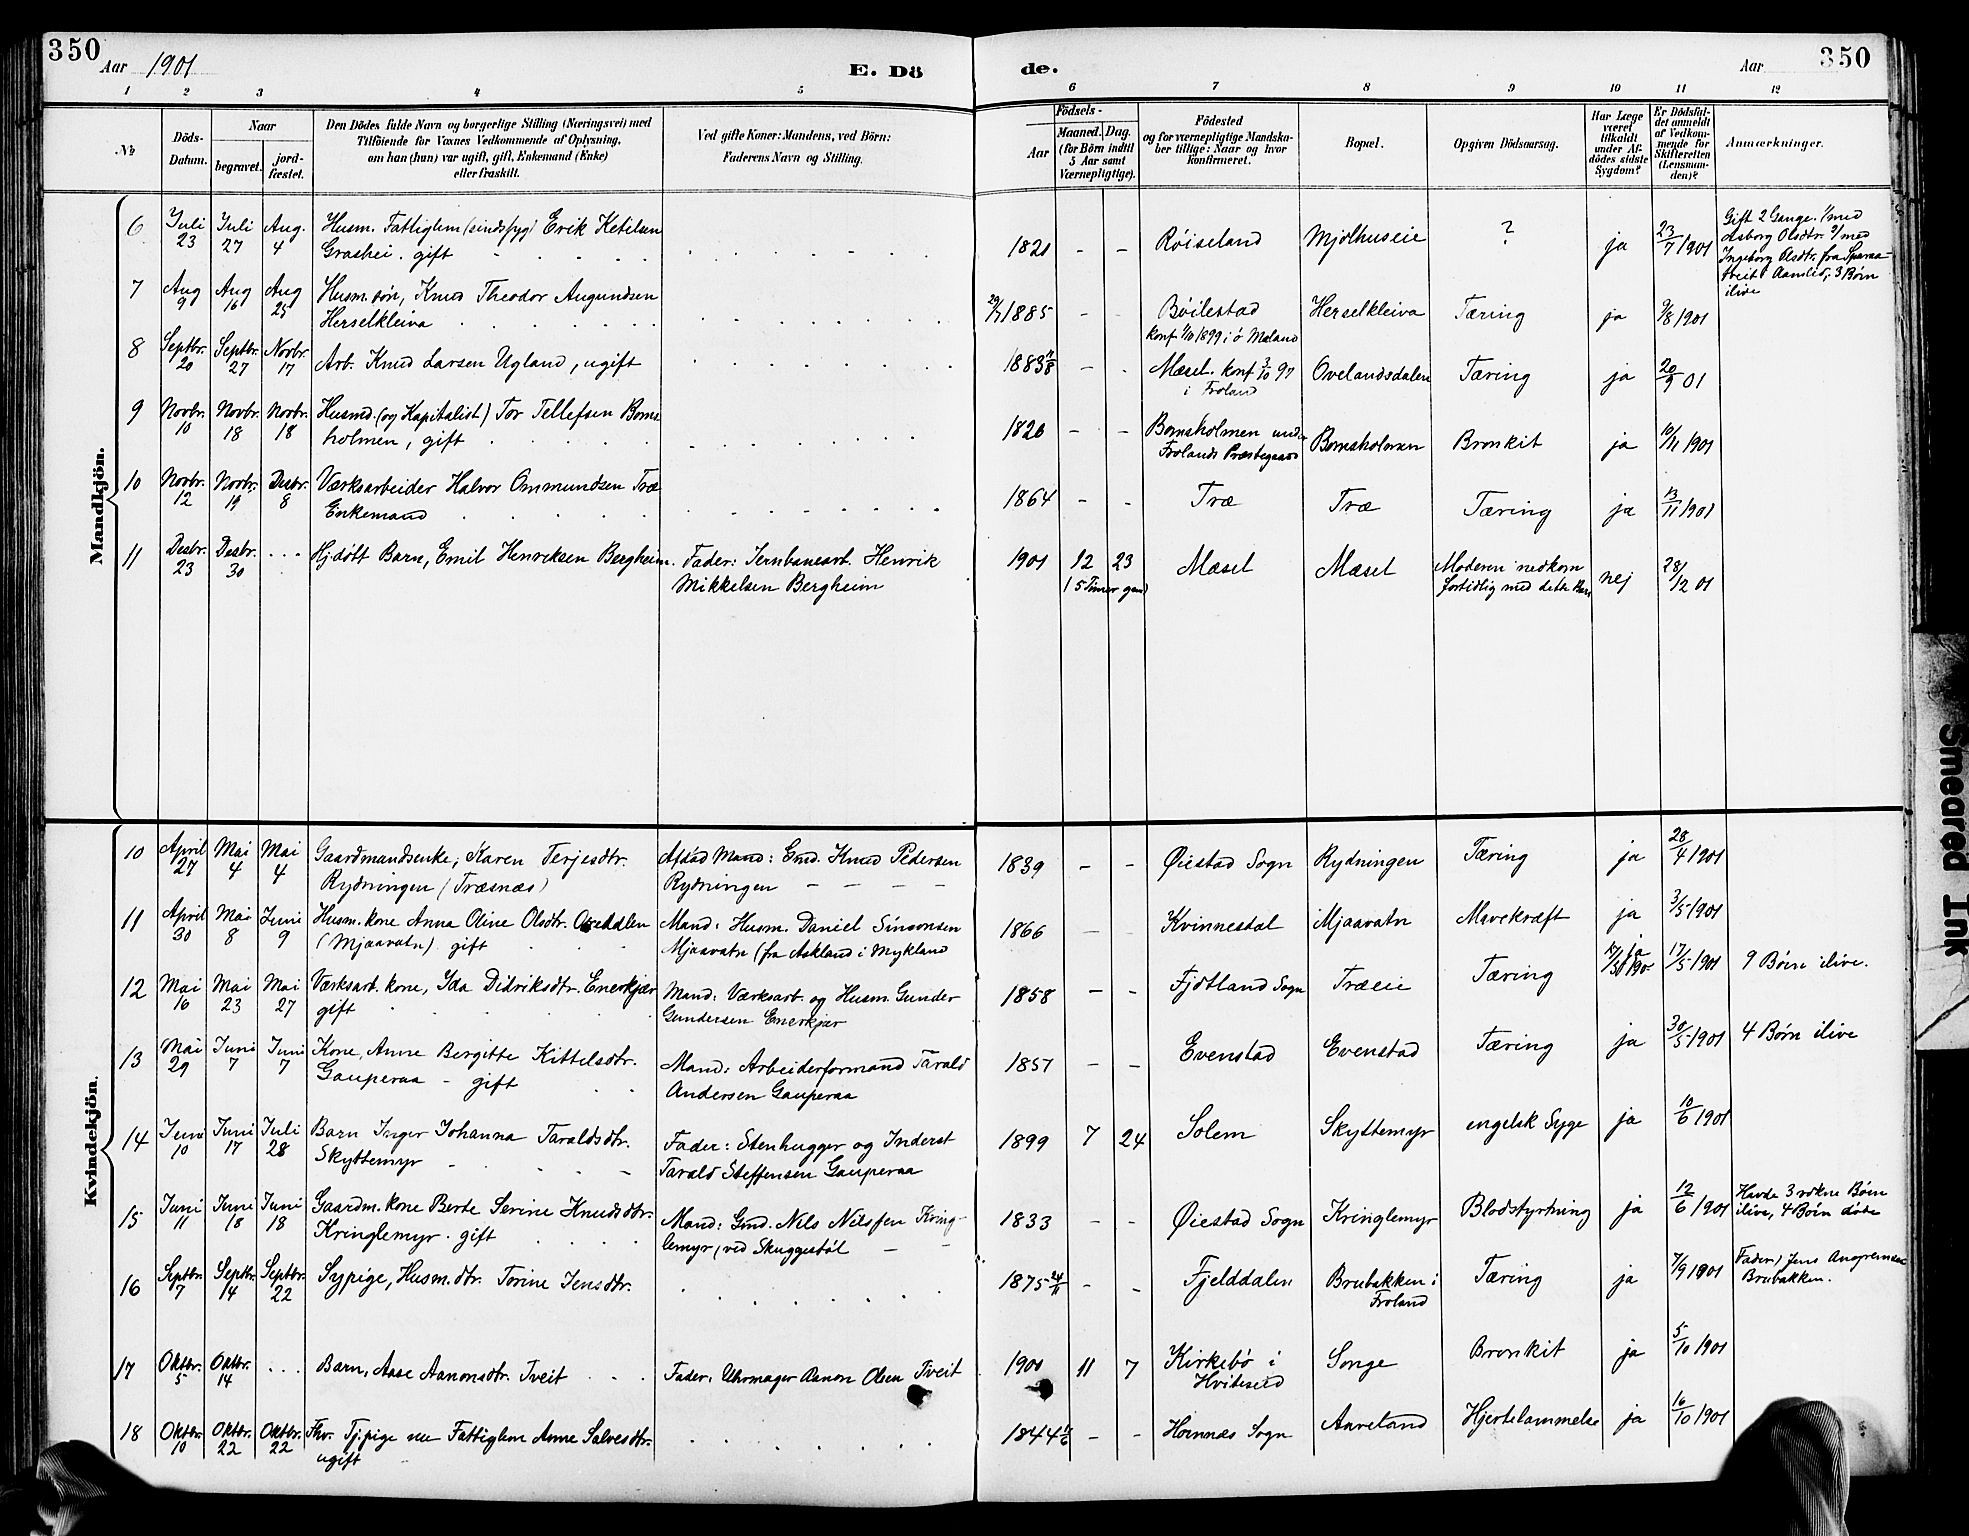 350
Aar 1901
E. Dö
de.
Aar
350
1 2 3 4 5 6 7 8 9 10 11 12
№
Döds-Datum.
Naar
begravet.
jord-fæstet.
Den Dödes fulde Navn og borgerlige Stilling (Næringsvei) med
Tilföiende for Voxnes Vedkommende af Oplysning,
om han (hun) var ugift, gift, Enkemand (Enke)
eller fraskilt.
Ved gifte Koner: Mandens, ved Börn:
Faderens Navn og Stilling.
Födsels-
Aar
Maaned. Dag.
(for Börn indtil
5 Aar samt
Værnepligtige).
Födested
og for værnepligtige Mandska-
ber tillige: Naar og hvor
konfirmeret.
Bopæl.
Opgiven Dödsaarsag.
Har Læge
været
tilkaldt
under Af-
dödes sidste
Sygdom?
Er Dödsfal-
det anmeldt
af Vedkom-
mende for
Skifteretten
(Lensman-
den)?
Anmærkninger.
Mandkjön.
6 Juli 23 Juli 27 Aug. 4 Husm. Fattiglem (sindssyg) Erik Ketilsen
Grashei. gift
1820 - - Röiseland Mjölhuseie ? ja 23/7 1901
Gift 2 Gange. 1/ med
Asborg Olsdtr. 2/ med
Ingeborg Olsdtr. fra
tveit i Aamlid, 3 Børn
ilive
7 Aug 9 Aug 16 Aug 25 Husm. søn, Knud Theodor Augundsen
Herselkleiva
29/7 1885 - - Böilestad Herselkleiva Tæring ja 9/8 1901
konf 1/10 1899 i ö Moland
8 Septbr. 20 Septbr. 27 Novbr. 17 Arb. Knud Larsen Ugland, ugift
1883 7/8 - - Mæsel. konf 3/10 97 Ovelandsdalen Tæring ja 20/9 01
i Froland
9 Novbr. 10 Novbr. 18 Novbr. 18 Husmd. (og Kapitalist) Tor Tellefsen Boms
holmen, gift
1820 - - Bomsholmen under Bomsholmen Bronkit ja 10/11 1901
Frolands Præstegaard
10 Novbr. 12 Novbr. 19 Desbr. 8 Værksarbeider Halvor Ommundsen Træ
Enkemand
1864 - - Træ Træ Tæring ja 13/11 1901
11 Desbr. 23 Desbr. 30 ... Hjdöbt Barn, Emil Henriksen Bergheim. Fader: Jernbanearb. Henrik
Mikkelsen Bergheim
1901 12 23 Mæsel Mæsel Moderen nedkom nej 28/12 01
(5 Timer gml) fortidlig med dette Barn
Kvindekjön.
10 April 27 Mai 4 Mai 4 Gaardmandsenke, Karen Terjesdtr. Afdöd Mand: Gmd. Knud Pedersen
Rydningen (Træsnæs) Rydningen
1839 - - Øiestad Sogn Rydningen Tæring ja 28/4 1901
11 April 30 Mai 8 Juni 9 Husm. kone Anna Oline Olsdtr. Osedalen Mand: Husm. Daniel Simonsen
(Mjaavatn) gift Mjaavatn (fra Askland i Mykland
1866 - - Kvinnesdal Mjaavatn Mavekræft ja 3/5 1901
12 Mai 16 Mai 23 Mai 27 Værksarb. kone, Ida Didriksdtr. Enerkjær Mand: Værksarb. og Husm. Gunder
gift Gundersen Enerkjær
1858 - - Fjotland Sogn Træeie Tæring ja 17/5 1901 9 Børn ilive.
13 Mai 29 Juni 7 Juni 7 Kone, Anne Bergitte Kittelsdtr. Mand: Arbeiderformand Tarald
Gauperaa - gift Andersen Gauperaa
1857 - - Evenstad Evenstad Tæring ja 30/5 1901 4 Børn ilive
14 Juni 10 Juni 17 Juli 28 Barn Inger Johanna Taraldsdtr. Fader: Stenhugger og Inderst
Skyttemyr Tarald Steffensen Gauperaa
1899 7 24 Solem Skyttemyr engelsk Syge ja 10/6 1901
15 Juni 11 Juni 18 Juni 18 Gaardm. kone Berte Serine Knudsdtr. Mand: Gmd. Nils Nilssen Kring-
Kringlemyr. gift lemyr, ved Skuggestöl
1833 - - Øiestad Sogn Kringlemyr Blodstyrtning ja 12/6 1901 Havde 3 vokne Børn
ilive, 4 Børn döde
16 Septbr. 7 Septbr. 14 Septbr. 22 Sypige, Husm. dtr. Torine Jensdtr.
1875 24/11 - - Fjelddalen Brubakken i Tæring ja 7/9 1901 Fader, Jens
Froland Brubakken.
17 Oktbr. 5 Oktbr. 14 ... Barn, Aase Aanonsdtr. Tveit Fader: Uhrmager Aanon Olsen Tveit
1900 11 7 Kirkebö i Songe Bronkit ja 5/10 1901
Hvitesed
18 Oktbr. 10 Oktbr. 22 Oktbr. 22 Fhv. Tjpige nu Fattiglem Anne Salvesdtr.
ugift
1844 - - Hornnæs Sogn Aaveland Hjertelammelse ja 16/10 1901
Smeared Ink